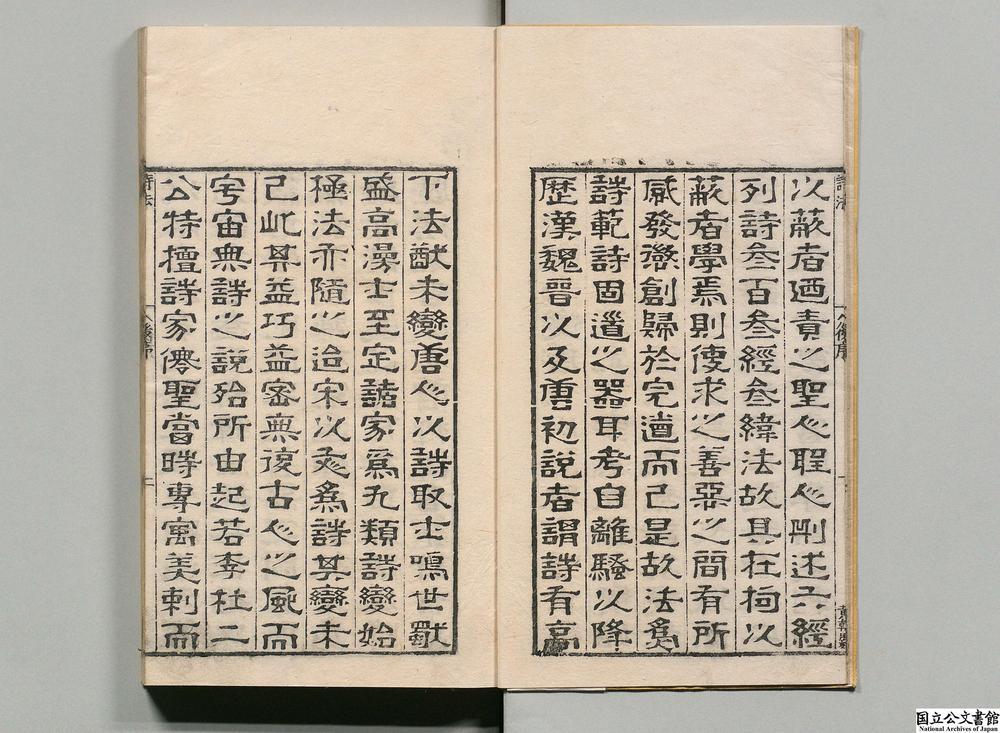 以蔽者廼責之聖人聖人刪述六經
列詩叁百叁經叁緯法故具在拘以
蔽者學焉則使求之善惡之間有所
感發懲創歸於完道而已是故法奚
詩範詩固道之器耳考自離騷以降
歷漢魏晉以及唐初說者謂詩有高
下法猶未變唐人以詩取士鳴世
盛高漫士至定諸家為九類詩變始
極法亦隨之迨宋以文為詩其變未
已此其益巧益密無復古人之風而
宇宙無詩之說殆所由起若李杜二
公特擅詩家僊聖當時專寓美刺而
詩法
後序
国立公文書館
National Archives of Japan